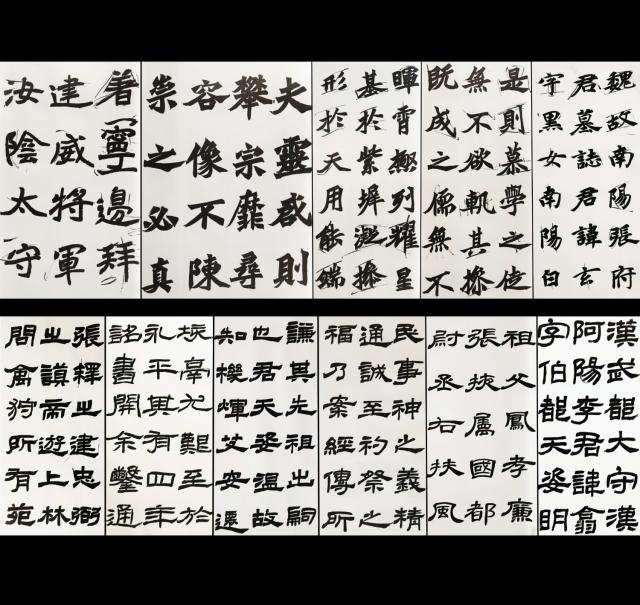 魏故南陽張府
君墓誌君諱玄
字黑女南陽白
是則慕學之徒
無不欲軌其操
既成之儒無不
暉霄極列耀星
基於紫墀
形於天用能端
夫靈感則
攀宗靡尋
容像不陳
崇之必真
着寧邊拜
建威將軍
汝陰太守
漢武都大守漢
阿陽李君諱翕
字伯都天姿明
祖父鳳孝廉
張掖属國都
尉丞右扶風
民事神之義精
通誠至礿祭之
福乃案經傳所
其先祖出
也君天姿溫故
知機煇艾安還
尤艱至於
永平其有四年
詔書開余鑿通
張釋之建忠弼
之謨帝遊上林
問禽狩所有苑